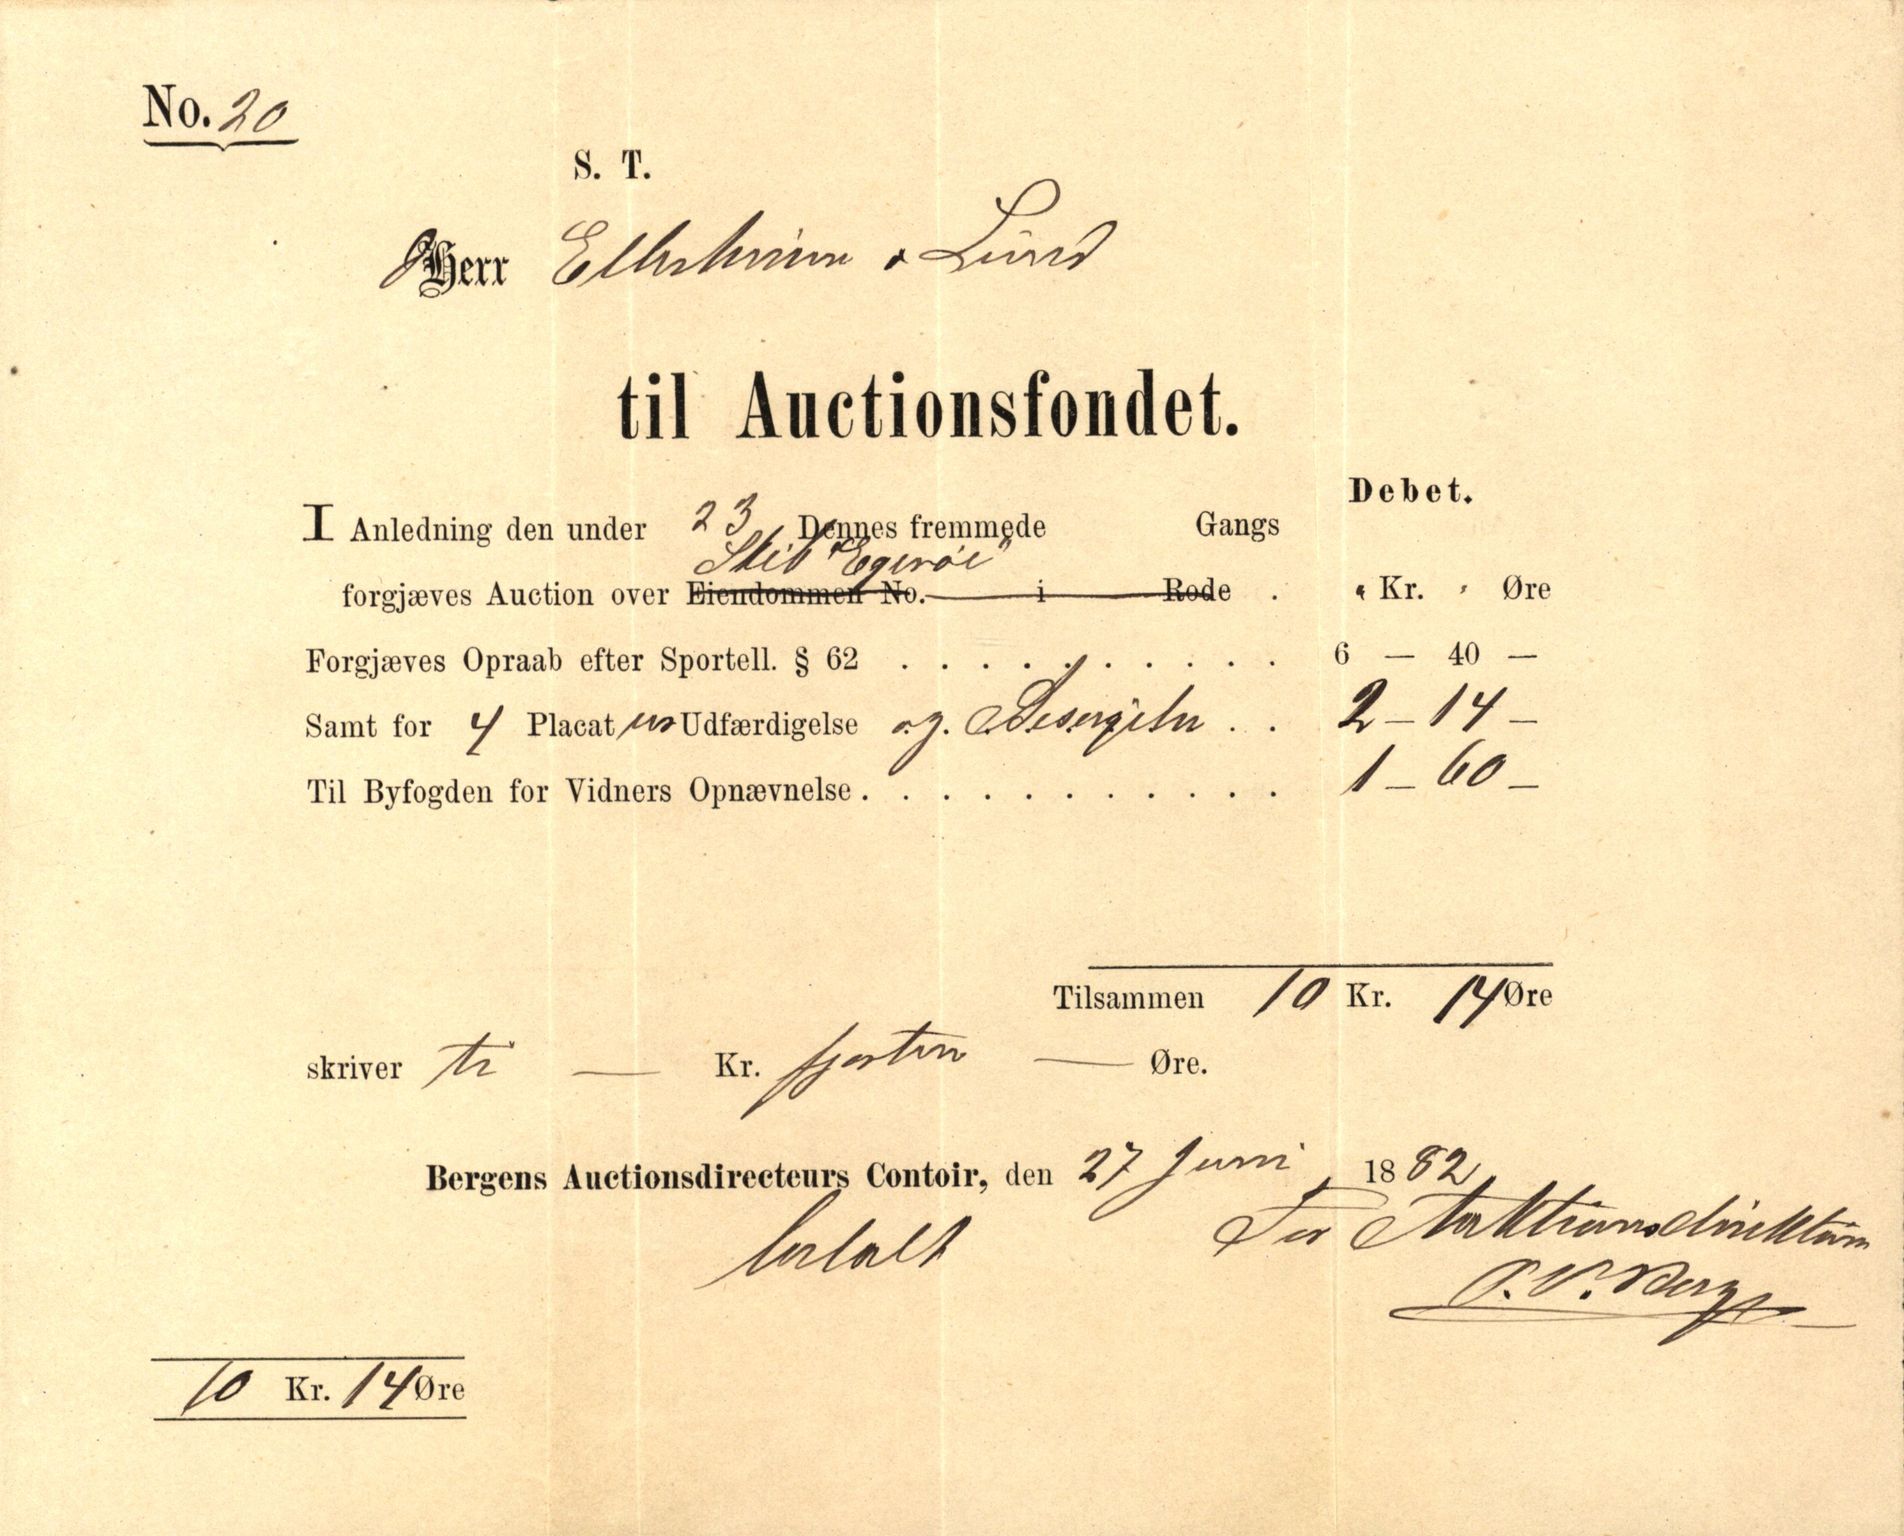 No. 20
S. T.
Herr Ellerhusen & Lund
til Auctionsfondet.
Debet.
I Anledning den under 23 Dennes fremmede Gangs
Skib "Egerøe"
forgjæves Auction over Eiendommen No. i Rode . " Kr. " Øre
Forgjæves Opraab efter Sportell. § 62 . . . . . . . . . . 6 — 40 —
Samt for 4 Placaters Udfærdigelse og . . 2 — 14 —
Til Byfogden for Vidners Opnævnelse . . . . . . . . . . . 1 — 60 —
Tilsammen 10 Kr. 14 Øre
skriver ti — Kr. fjorten — Øre.
Bergens Auctionsdirecteurs Contoir, den 27 Juni 1882
betalt For Auktionsdirektøren
P. V. Berg
10 Kr. 14 Øre